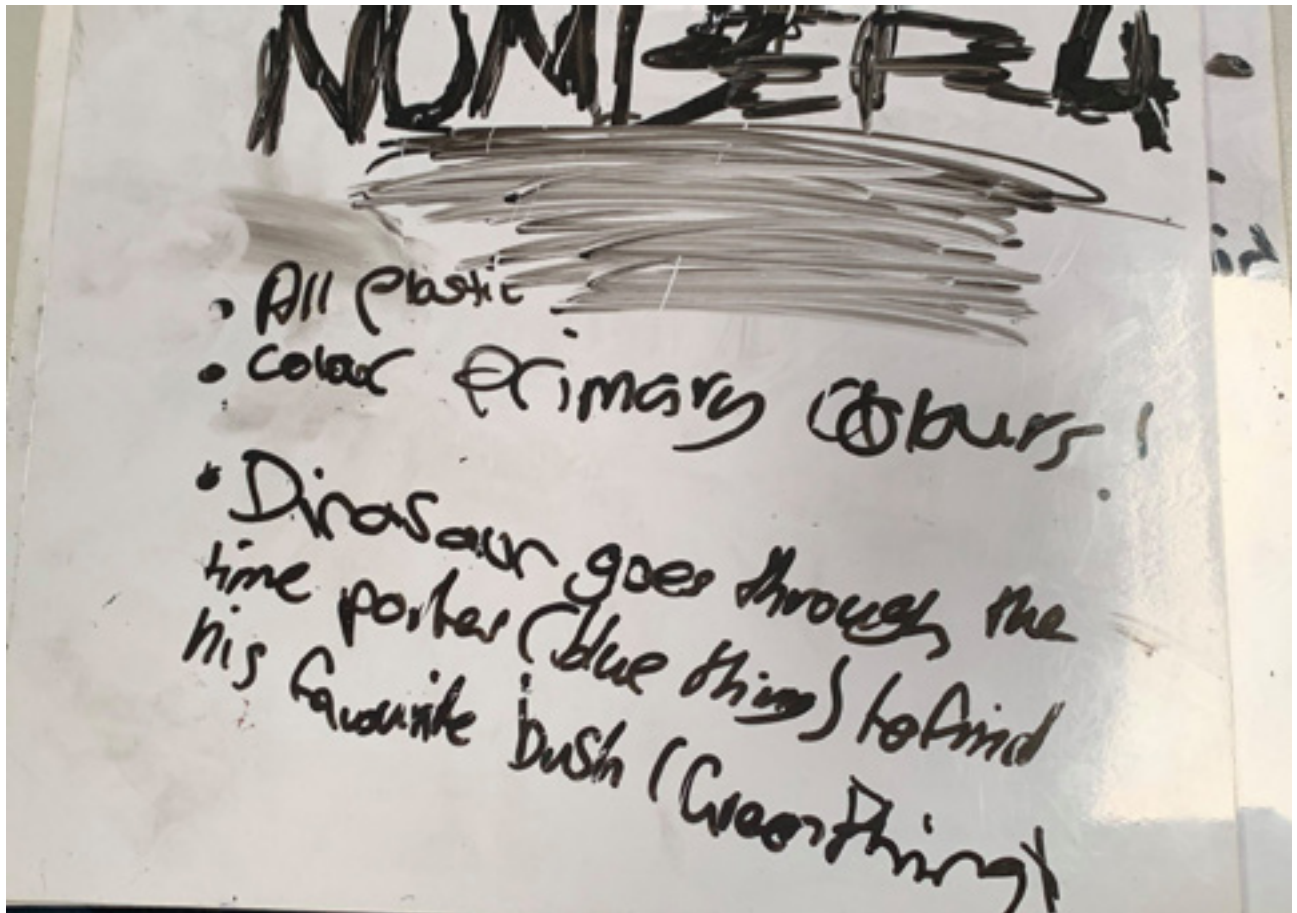 NUMBER 4
• All plastic
• colour primary colours
• Dinasaur goes through the
time porter (blue thing) to find
his favourite bush (Green thing)